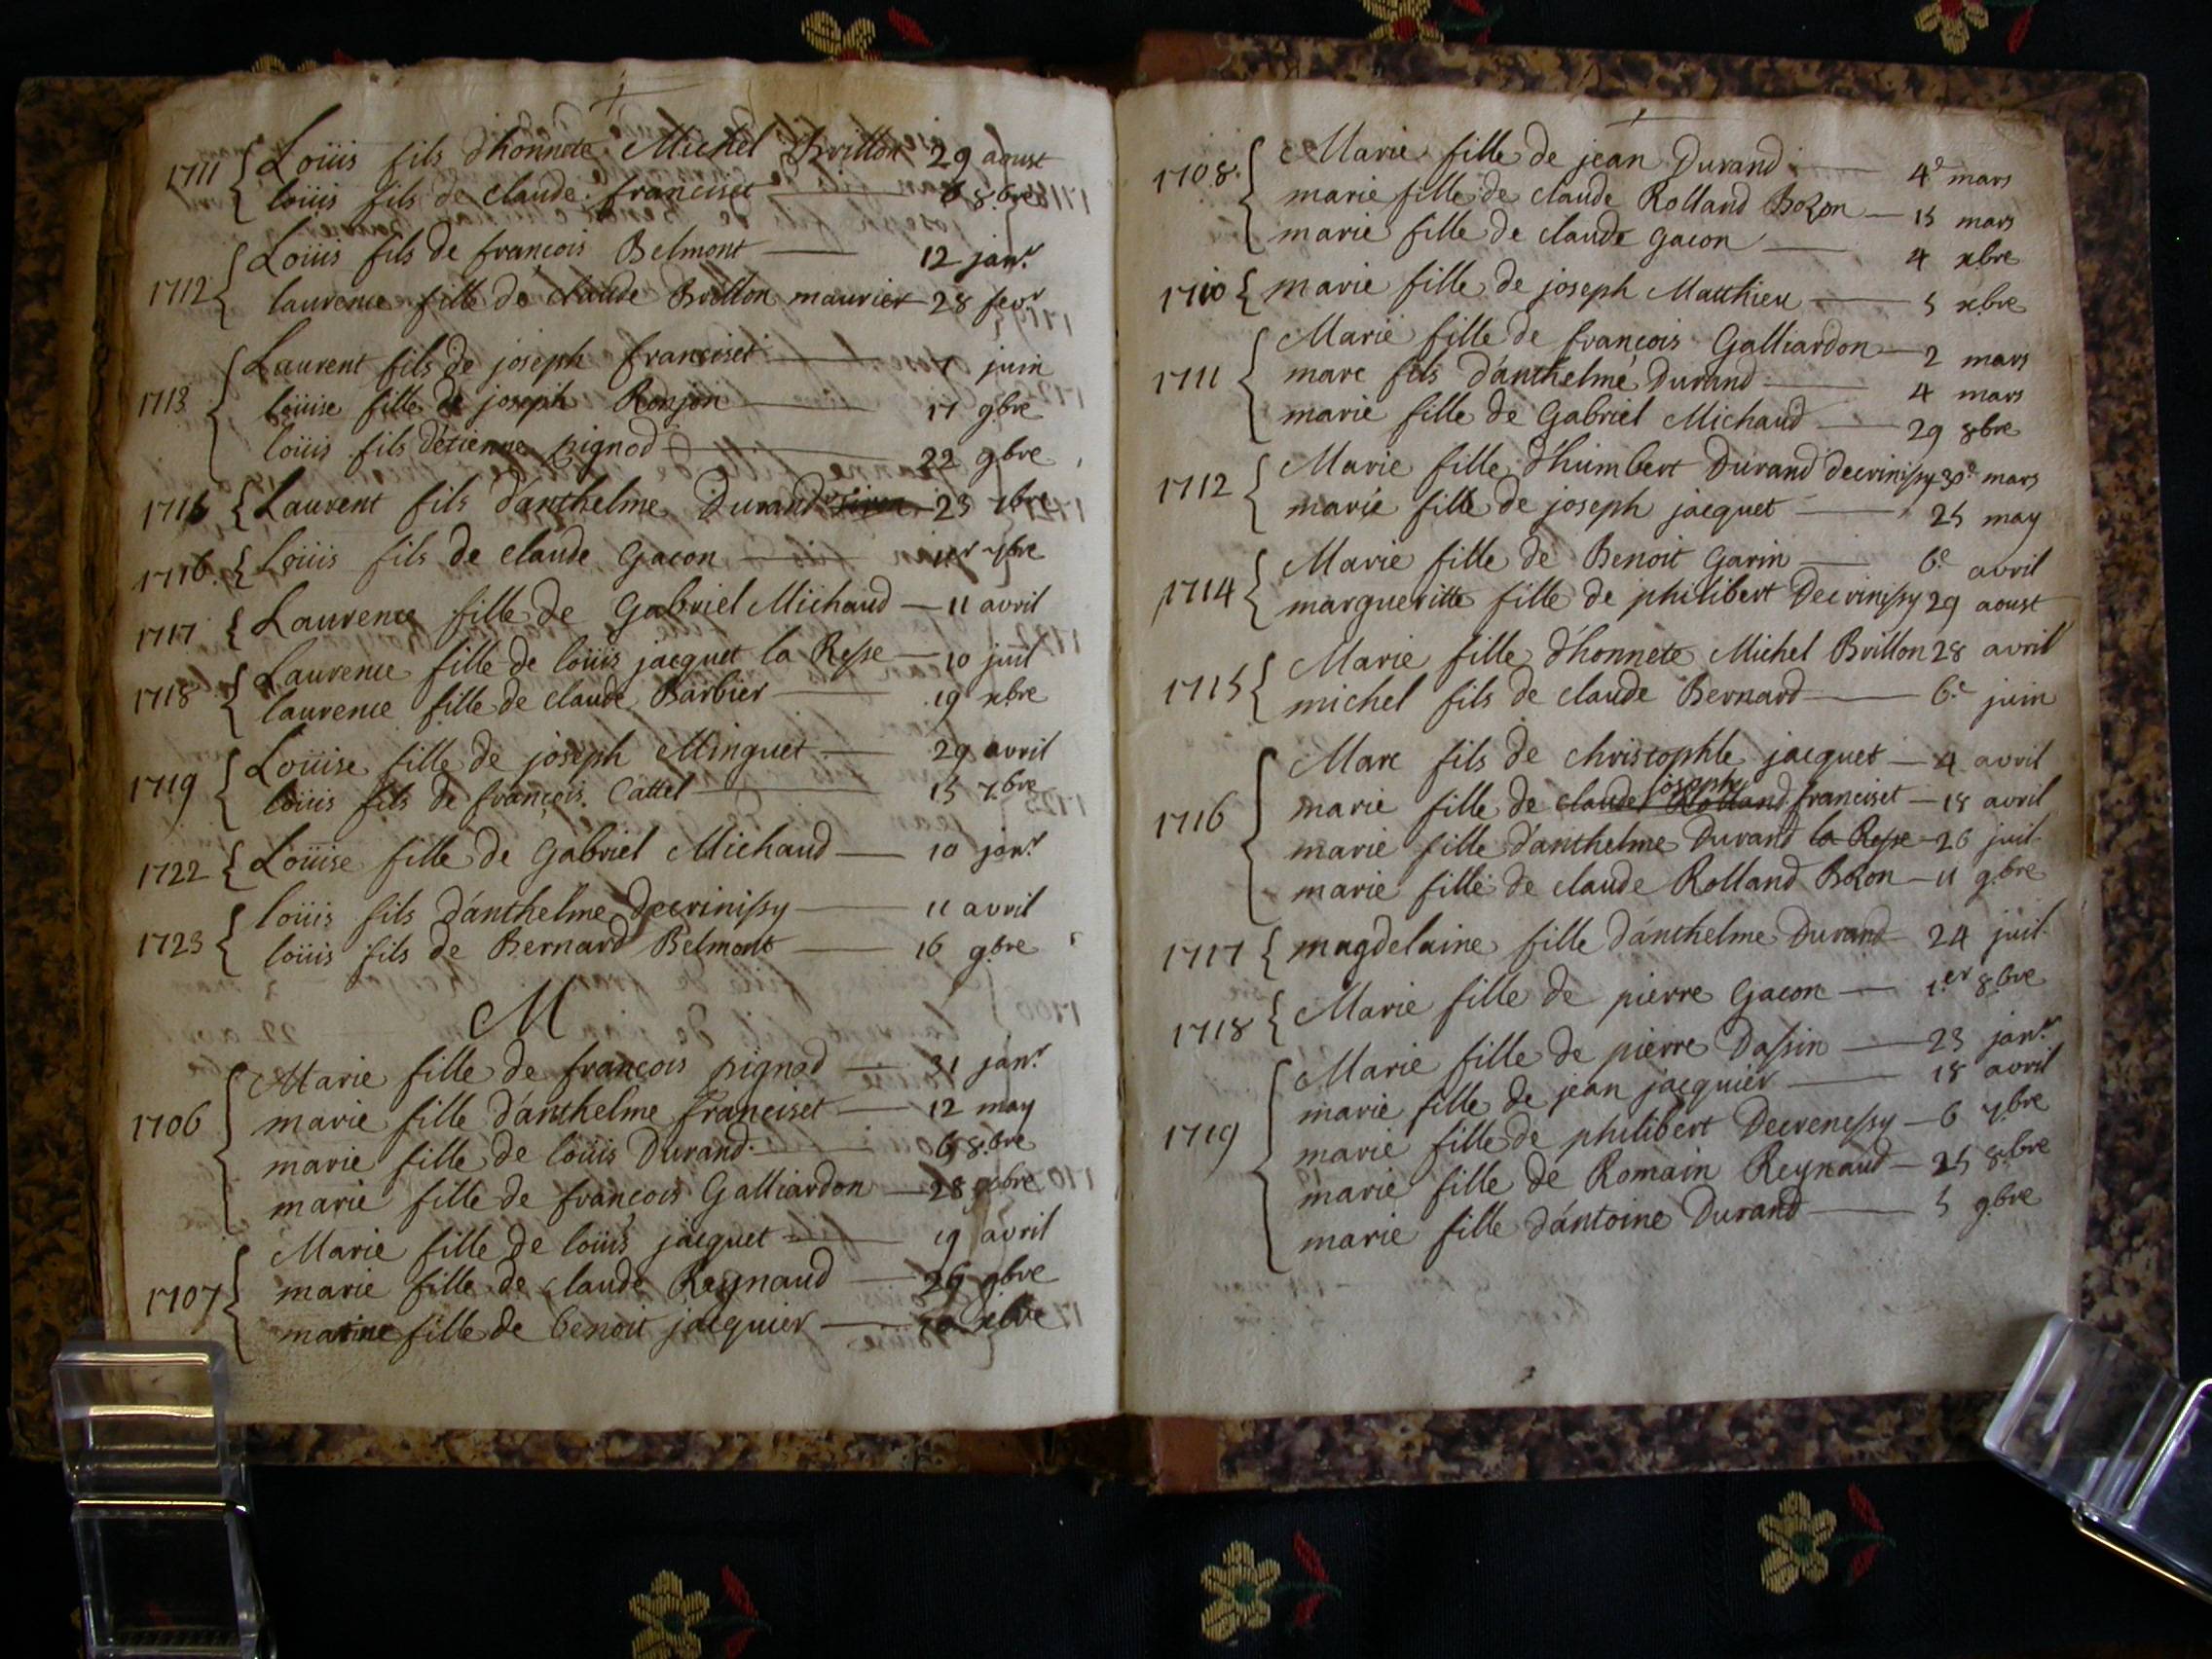 1711 { Loüis fils d'honnete Michel Brillon 29 aoust
loüis fils de claude franciset 6 8.bre
1712 { Loüis fils de françois Belmont 12 jan.r
laurence fille de claude Brillon maurier 28 fev.r
1713 { Laurent fils de joseph franciset juin
loüise fille de joseph Ronjon 17 9.bre
loüis fils d'etienne pignod 22 9.bre
1715 { Laurent fils d'anthelme Durand 23
1716. { Loüis fils de claude Gacon 1.er 7.bre
1717 { Laurence fille de Gabriel Michaud 11 avril
1718 { Laurence fille de loüis jacquet la Resse 10 juil
laurence fille de claude Barbier 19 xbre
1719 { Loüise fille de joseph Minguet 29 avril
loüis fils de françois Cattel 15 7.bre
1722 { Loüise fille de Gabriel Michaud 10 jan.r
1723 { loüis fils d'anthelme Decrinissy 11 avril
loüis fils de Bernard Belmont 16 9.bre
M
1706 { Marie fille de françois pignod 31 jan.r
marie fille d'anthelme franciset 12 may
marie fille de loüis Durand 6 8.bre
marie fille de françois Galliardon 28 9bre
1707 { Marie fille de loüis jacquet 19 avril
marie fille de claude Reynaud 26 9bre
marine fille de benoit jacquier xbre
1708. { Marie fille de jean Durand 4.e mars
marie fille de claude Rolland Bozon 15 mars
marie fille de claude gacon 4 xbre
1710 { marie fille de joseph Matthieu 5 xbre
1711 { Marie fille de françois Galliardon 2 mars
marc fils d'anthelme Durand 4 mars
marie fille de Gabriel Michaud 29 8bre
1712 { Marie fille d'humbert Durand decrinissy 30.e mars
marie fille de joseph jacquet 25 may
1714 { Marie fille de Benoit Garin 6.e avril
margueritte fille de philibert Decrinissy 29 aoust
1715 { Marie fille d'honnete Michel Brillon 28 avril
michel fils de claude Bernard 6.e juin
1716 { Marc fils de christophle jacquet 4 avril
joseph
marie fille de claude Rolland franciset 18 avril
marie fille d'anthelme Durand la Resse 26 juil.
marie fille de claude Rolland Bozon 11 9.bre
1717 { magdelaine fille d'anthelme Durand 24 juil.
1718 { Marie fille de pierre Gacon 1.er 8.bre
1719 { Marie fille de pierre Dassin 23 jan.r
marie fille de jean jacquier 18 avril
marie fille de philibert Decrenessy 6 7.bre
marie fille de Romain Reynaud 25 8.bre
marie fille d'antoine Durand 5 9.bre